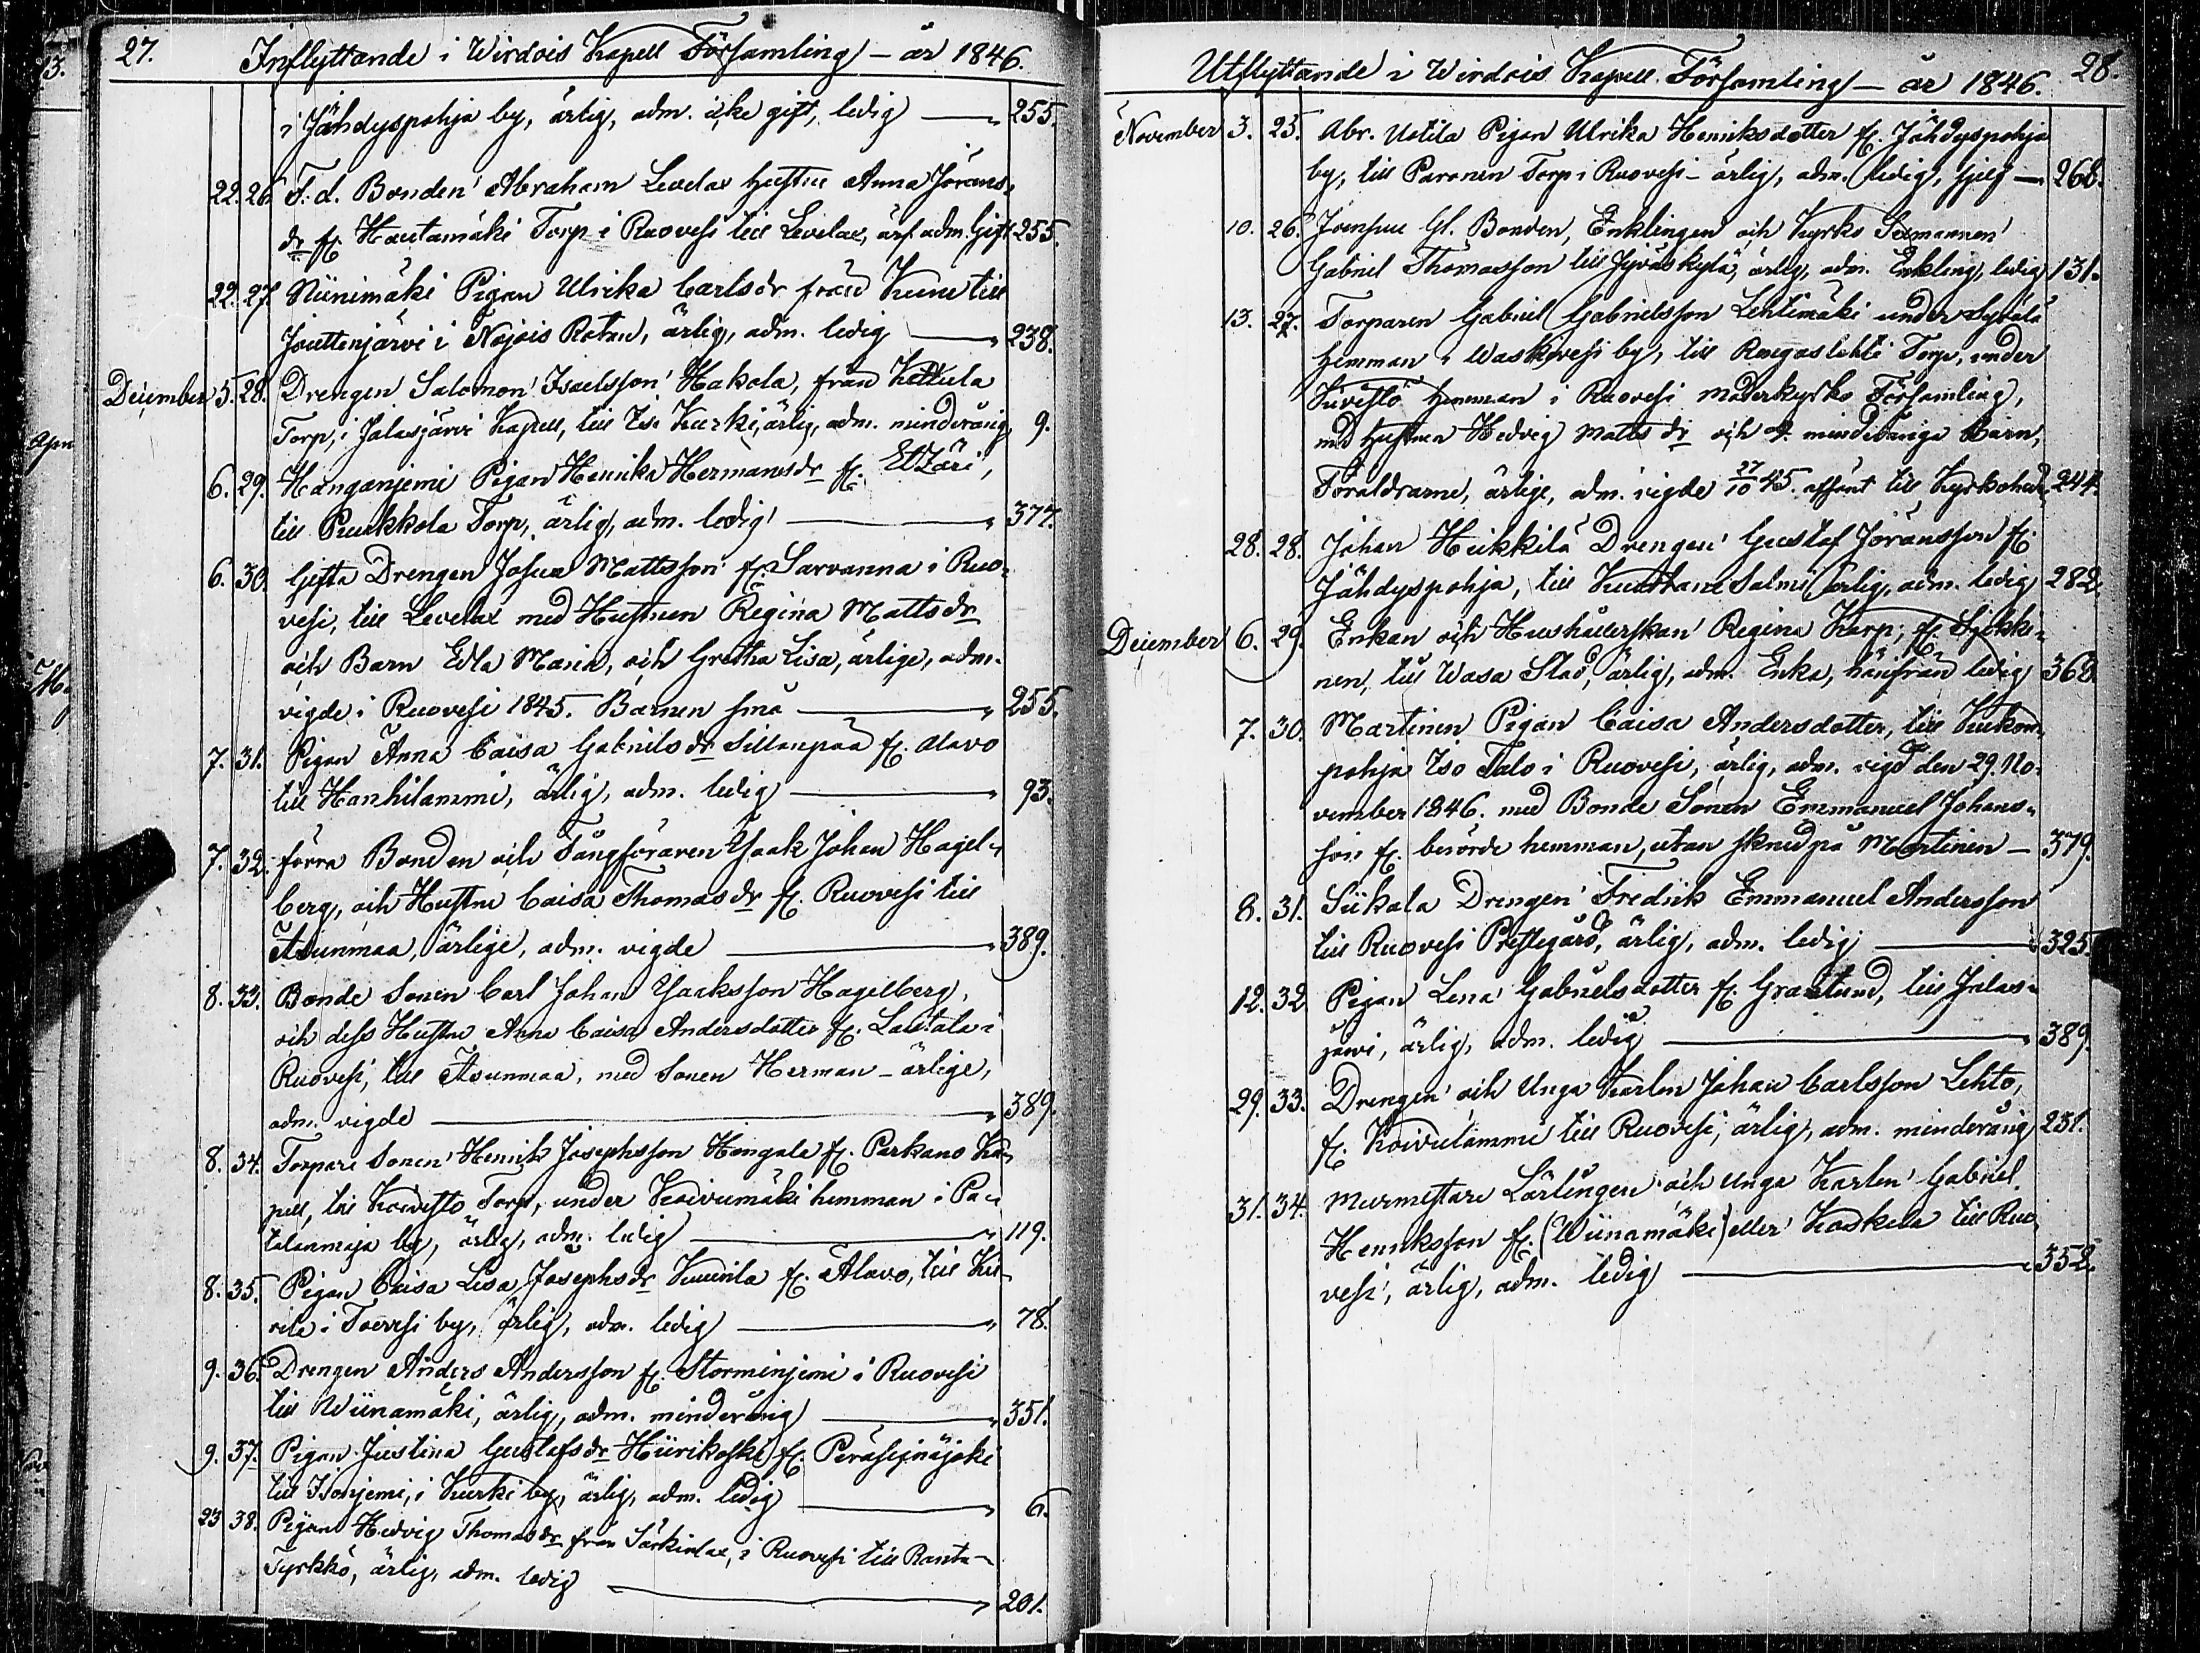 27. Inflyttande i Wirdois Kapell Församling – år 1846.
i Jähdyspohja by, ärlig, adm. icke gift, ledig — 255.
22. 26. F. d. Bonden Abraham Levelax Hustru Anna Jörans-
dr fr. Hautamäki Torp i Ruovesi till Levelax, ärl. adm. Gift 255.
22. 27. Niinimäki Pigan Ulrika Carlsdr från Keuru till
Jouttenjärvi i Rotan, ärlig, adm. ledig — 238.
December 5. 28. Drengen Salomon Isaelsson Hakola, från Kettula
Torp, i Jalasjärvi Kapell, till Iso Kurki, ärlig, adm. minderårig 9.
6. 29. Hanganjemi Pigan Henrika Hermansdr fr. Etzäri,
till Puukkola Torp, ärlig, adm. ledig — 377.
6. 30. Gifta Drengen Josua Mattsson fr. Sarvanna i Ruo-
vesi, till Levelax med Hustrun Regina Mattsdr
och Barn Edla Maria, och Gretha Lisa, ärlige, adm.
vigde i Ruovesi 1845. Barnen små — 255.
7. 31. Pigan Anna Caisa Gabrielsdr Sillanpää fr. Alavo
till Hanhilammi, ärlig, adm. ledig — 93.
7. 32. förra Bonden och Fångföraren Isaak Johan Hagel-
berg, och Hustru Caisa Thomasdr fr. Ruovesi till
Asunmaa, ärlige, adm. vigde — 389.
8. 33. Bonde Sonen Carl Johan Isaaksson Hagelberg,
och dess Hustru Anna Caisa Andersdotter fr. Lautala i
Ruovesi, till Asunmaa, med Sonen Herman – ärlige,
adm. vigde — 389.
8. 34. Torpare Sonen Henrik Josephsson Hangala fr. Parkano Ka-
pell, till Koivisto Torp, under Koivumäki hemman i Pa-
talanmaja by, ärlig, adm. ledig — 119.
8. 35. Pigan Caisa Lisa Josephsdr Kuurila fr. Alavo, till
i Toivesi by, ärlig, adm. ledig — 78.
9. 36. Drengen Anders Andersson fr. Storminjemi i Ruovesi
till Wiinamäki, ärlig, adm. minderårig — 351.
9. 37. Pigan Justina Gustafsdr Hiirikoski fr. Peräseinäjoki
till Isonjemi, i Kurki by, ärlig, adm. ledig — 6.
23. 38. Pigan Hedvig Thomasdr från Särkinlax, i Ruovesi till Ranta-
Tyrkkö, ärlig, adm. ledig — 201.
Utflyttande i Wirdois Kapell Församling – år 1846. 28.
November 3. 25. Abr. Uotila Pigan Ulrika Henriksdotter fr. Jähdyspohja
by, till Paronen Torp i Ruovesi – ärlig, adm. ledig, — 268.
10. 26. Jonsuu Gl. Bonden, Enklingen och Kyrko Sexmannen
Gabriel Thomasson till Jyväskylä, ärlig, adm. Enkling, ledig 131.
13. 27. Torparen Gabriel Gabrielsson Lehtimäki under
Hemman i Waskivesi by, till Torp, under
Hemman i Ruovesi Moderkyrko Församling,
med Hustrun Hedvig Mattsdr och 2. minderåriga Barn,
Föräldrarne, ärlige, adm. vigde 27/10 45. 244.
28. 28. Johan Heikkilä Drengen Gustaf Jöransson fr.
Jähdyspohja, till Salmi, ärlig, adm. ledig 282.
December 6. 29. Enkan och Hushållerskan Regina Karp, fr. Sjekki-
nen, till Wasa Stad, ärlig, adm. Enka, härifrån ledig 368.
7. 30. Martinen Pigan Caisa Andersdotter, till
pohja Iso Talo i Ruovesi, ärlig, adm. vigd den 29. No-
vember 1846. med Bonde Sonen Emmanuel Johans-
son fr. berörde hemman, utan skrud på Martinen — 379.
8. 31. Siikala Drengen Fredrik Emmanuel Andersson
till Ruovesi Prestegård, ärlig, adm. ledig — 325.
12. 32. Pigan Lena Gabrielsdotter fr. Granlund, till Jalas-
järvi, ärlig, adm. ledig — 389.
29. 33. Drengen och Unga Karlen Johan Carlsson Lehto,
fr. Koivulammi till Ruovesi, ärlig, adm. minderårig 231.
31. 34. Murmestare Lärlingen och Unga Karlen Gabriel
Henriksson fr. (Wiinamäki) eller Kaskela till Ruo-
vesi, ärlig, adm. ledig — 352.